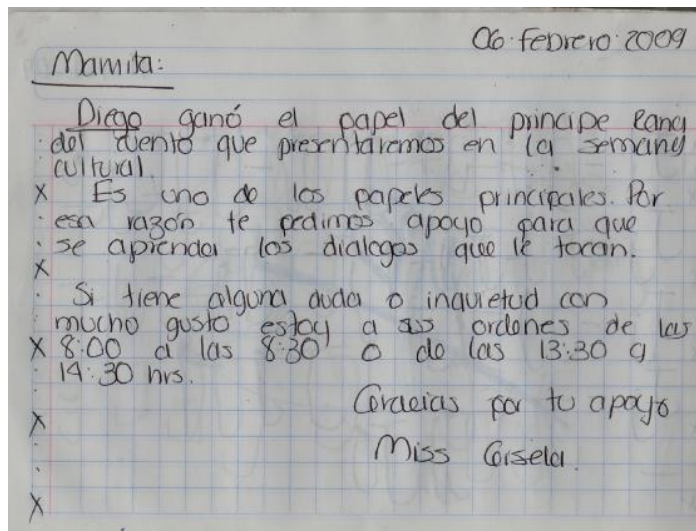 06·febrero·2009
Mamita:
Diego ganó el papel del principe Rana
del cuento que presentaremos en la semana
cultural.
Es uno de los papeles principales. Por
esa razón te pedimos apoyo para que
se aprenda los dialogos que le tocan.
Si tiene alguna duda o inquietud con
mucho gusto estoy a sus ordenes de las
8:00 a las 8:30 o de las 13:30 a
14:30 hrs.
Gracias por tu apoyo
Miss Gisela.